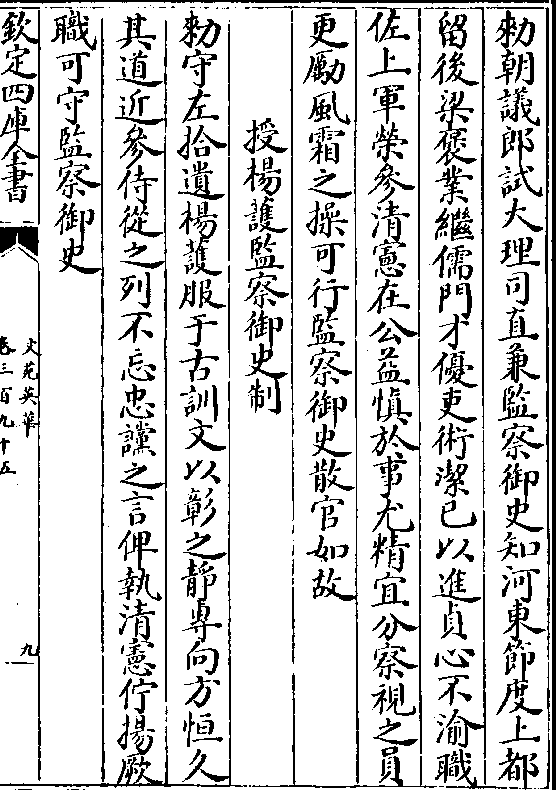 勑朝議郎試大理司直兼監察御史知河東節度上都
留後梁褒業繼儒門才優吏術潔已以進貞心不渝職
佐上軍榮參清憲在公益慎於事尤精宜分察視之員
更勵風霜之操可行監察御史散官如故
授楊護監察御史制
勑守左拾遺楊護服于古訓文以彰之静專向方恒久
其道近參侍從之列不忘忠讜之言俾執清憲佇揚厥
職可守監察御史
欽定四庫全書
文苑英華
卷三百九十五
九